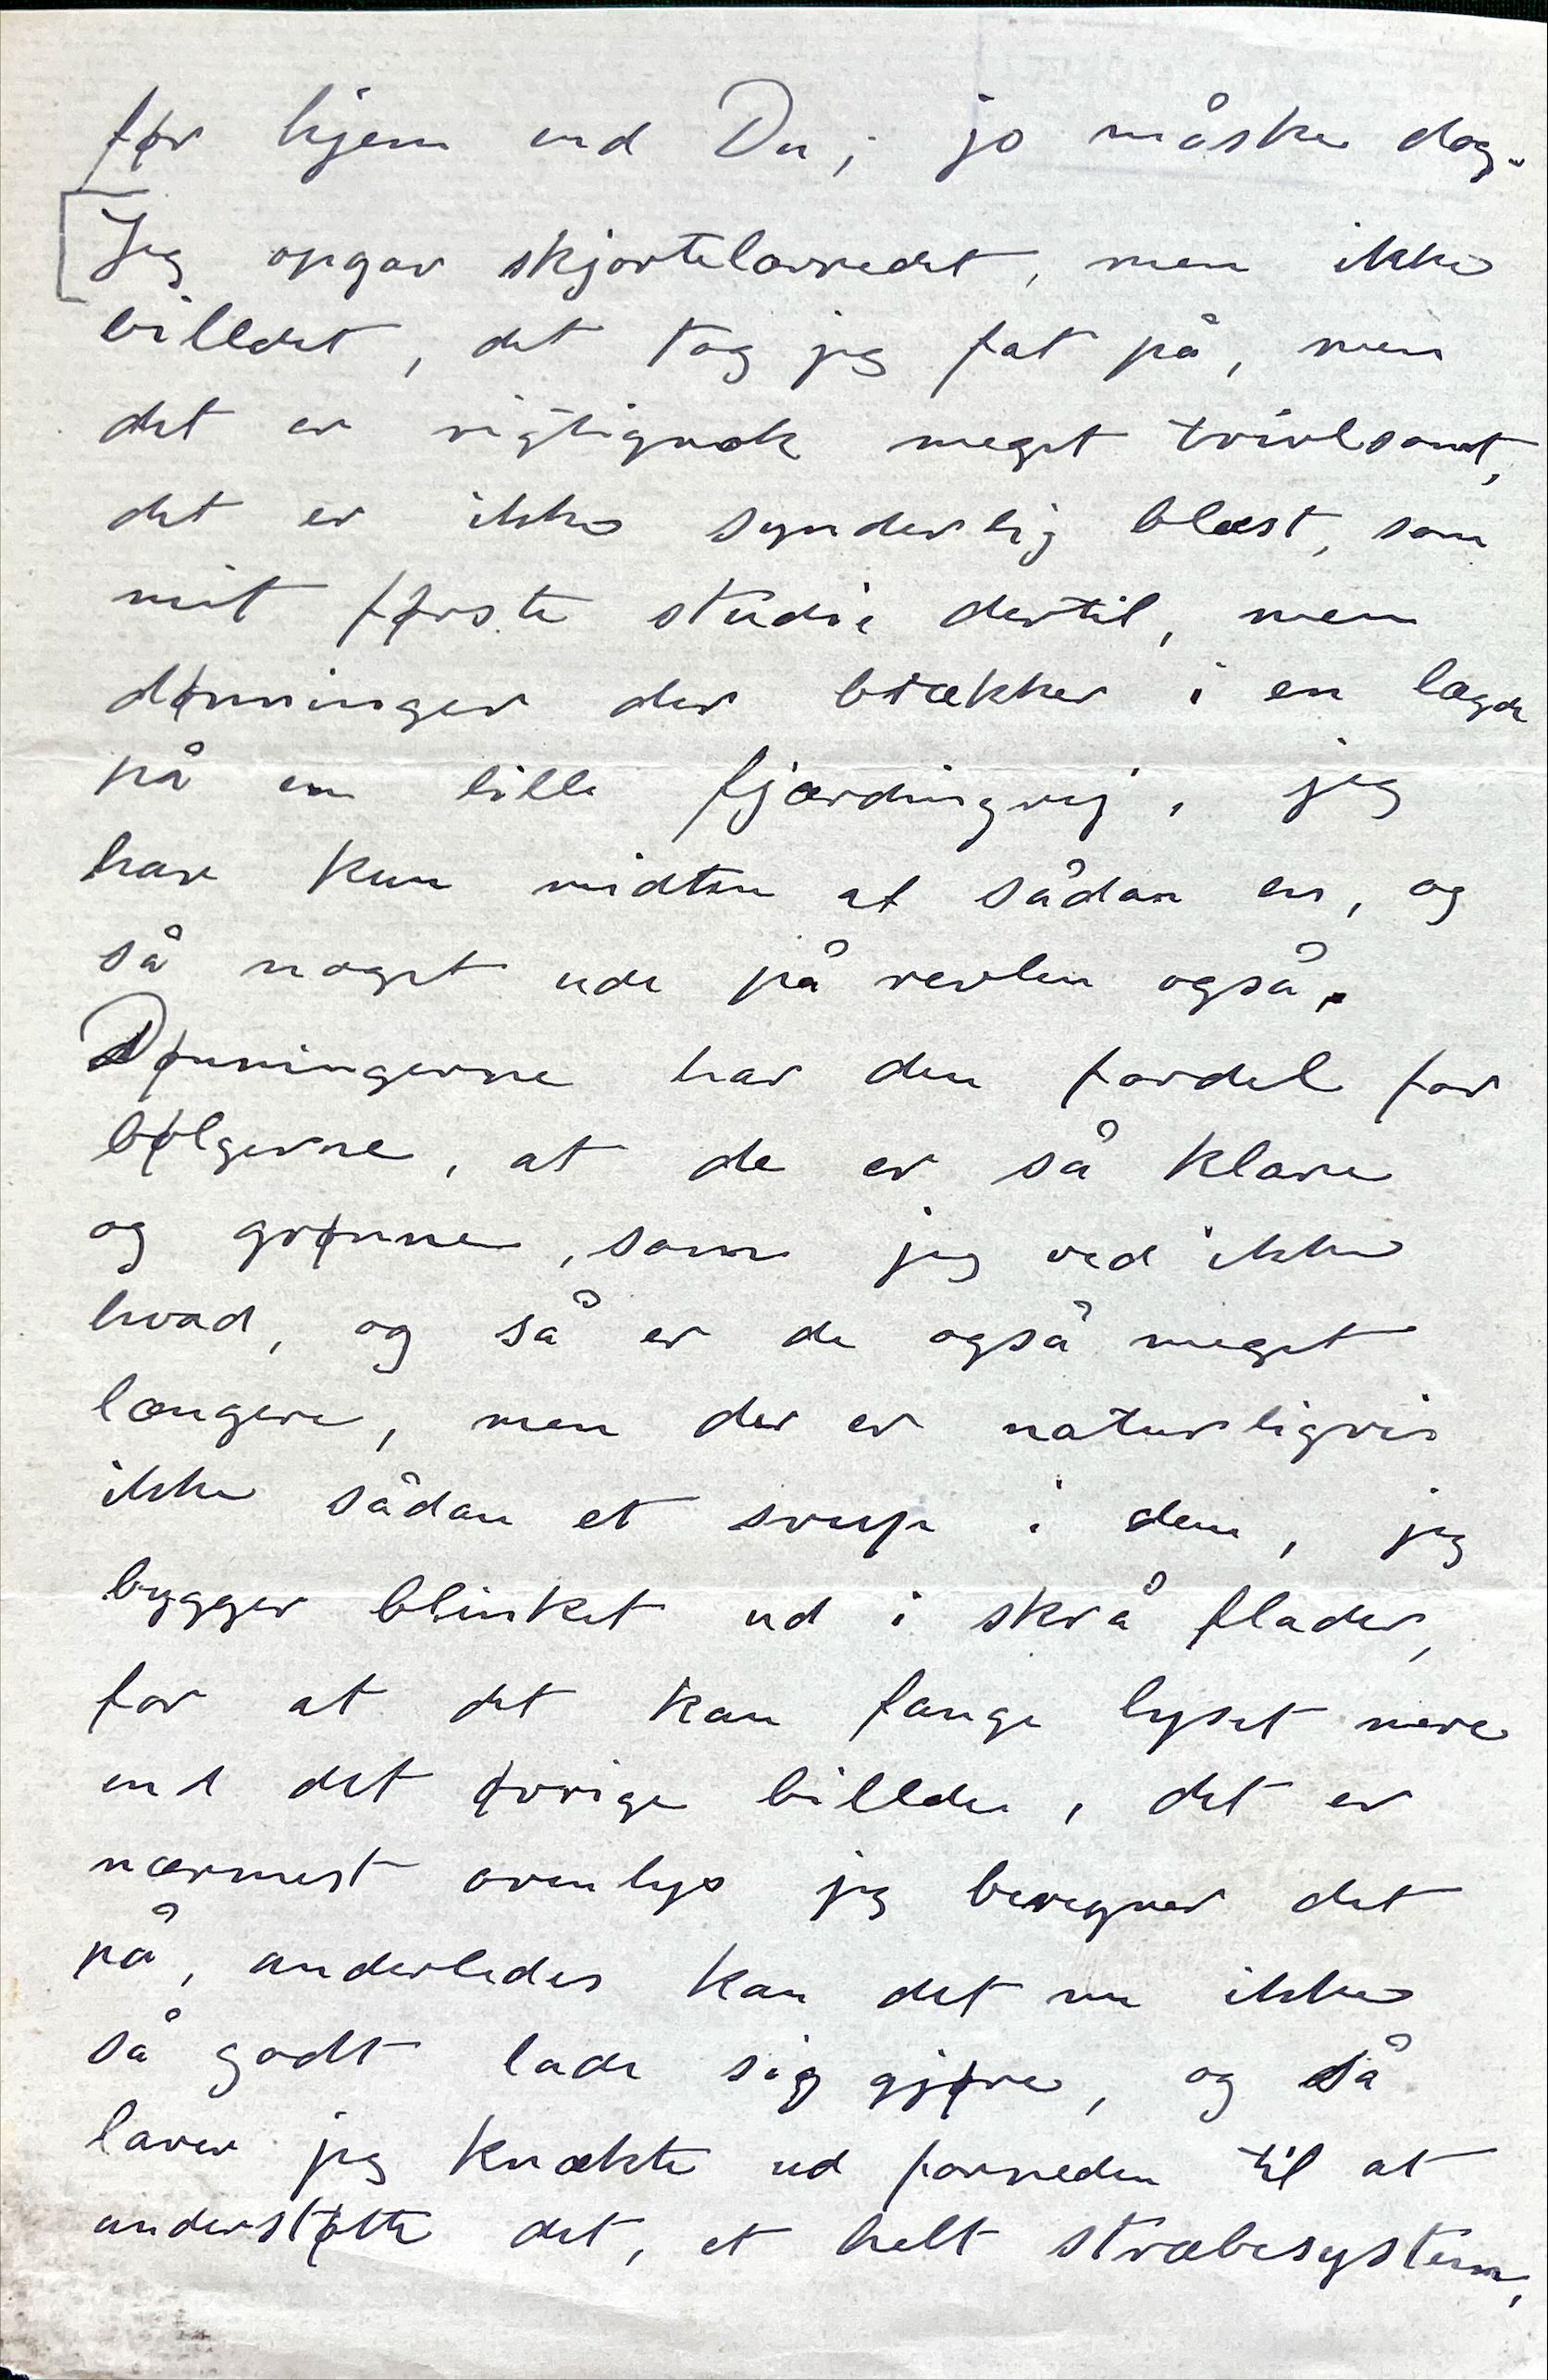 før hjem end Du, jo måske dog.
[Jeg opgav skjortelærredet, men ikke
billedet, det tog jeg fat på, men
det er rigtignok meget tvivlsomt,
det er ikke synderlig blæst, som
mit første studie dertil, men
dønninger der brækker i en lægde
på en lille fjærdingvej, jeg
har kun midten af sådan en, og
så noget ude på revlen også.
Dønningerne har den fordel for
bølgerne, at de er så klare
og grønne, som jeg ved ikke
hvad, og så er de også meget
længere, men der er naturligvis
ikke sådan et svup i dem, jeg
bygger blinket ud i skrå flader,
for at det kan fange lyset mere
end det øvrige billede, det er
nærmest ovenlys jeg beregner det
på, anderledes kan det nu ikke
så godt lade sig gjøre, og så
laver jeg knækte ud forneden til at
understøtte det, et helt stræbesystem,